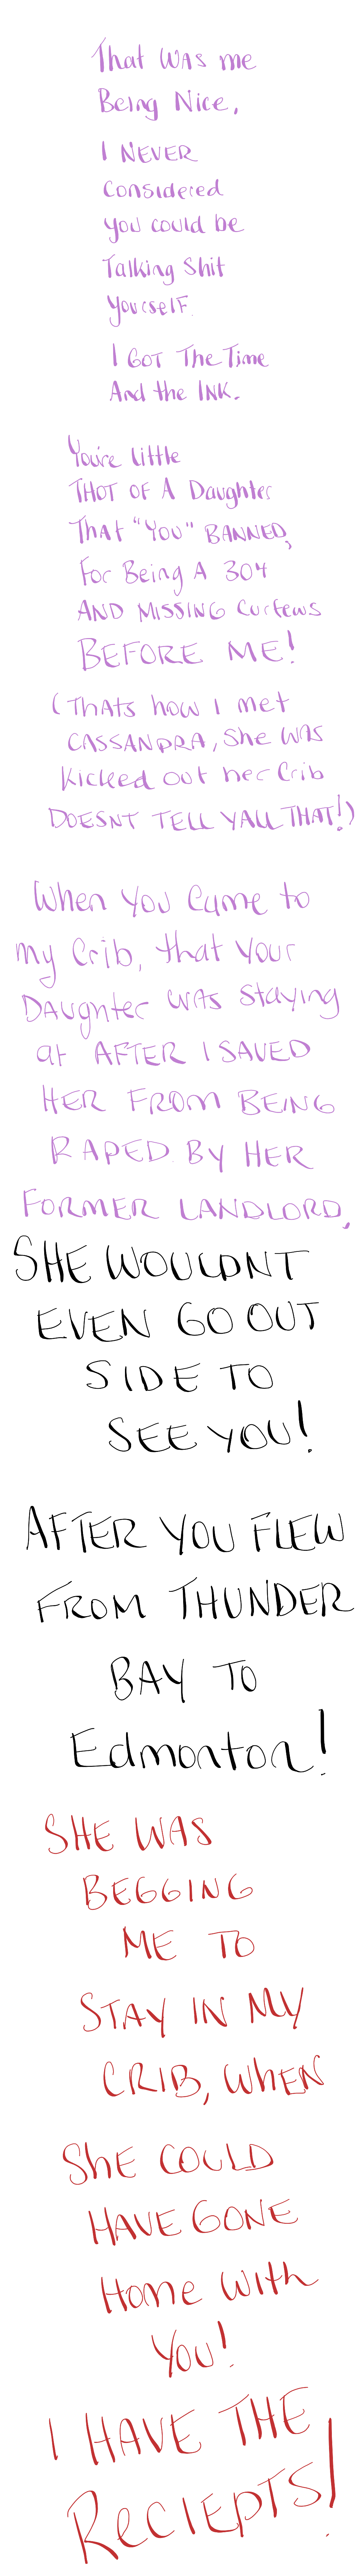 That WAS me
Being Nice,
I NEVER
Considered
you could be
Talking Shit
YourselF.
I GoT The Time
And the INK.
You're little
THOT OF A Daughter
THAT "YOU" BANNED,
For Being A 304
AND MISSING Curfews
BEFORE ME!
(Thats how I met
CASSANDRA, She WAS
Kicked out her Crib
DOESNT TELL YALL THAT!)
When You Came to
my Crib, that Your
DAughter WAS Staying
at AFTER I SAVED
HER FROM BEING
RAPED BY HER
FORMER LANDLORD,
SHE WOULDNT
EVEN GO OUT
SIDE TO
SEE YOU!
AFTER YOU FLEW
FROM THUNDER
BAY TO
Edmonton!
SHE WAS
BEGGING
ME TO
STAY IN MY
CRIB, WHEN
ShE COULD
HAVE GONE
Home With
YOU!
I HAVE THE
RECIEPTS!